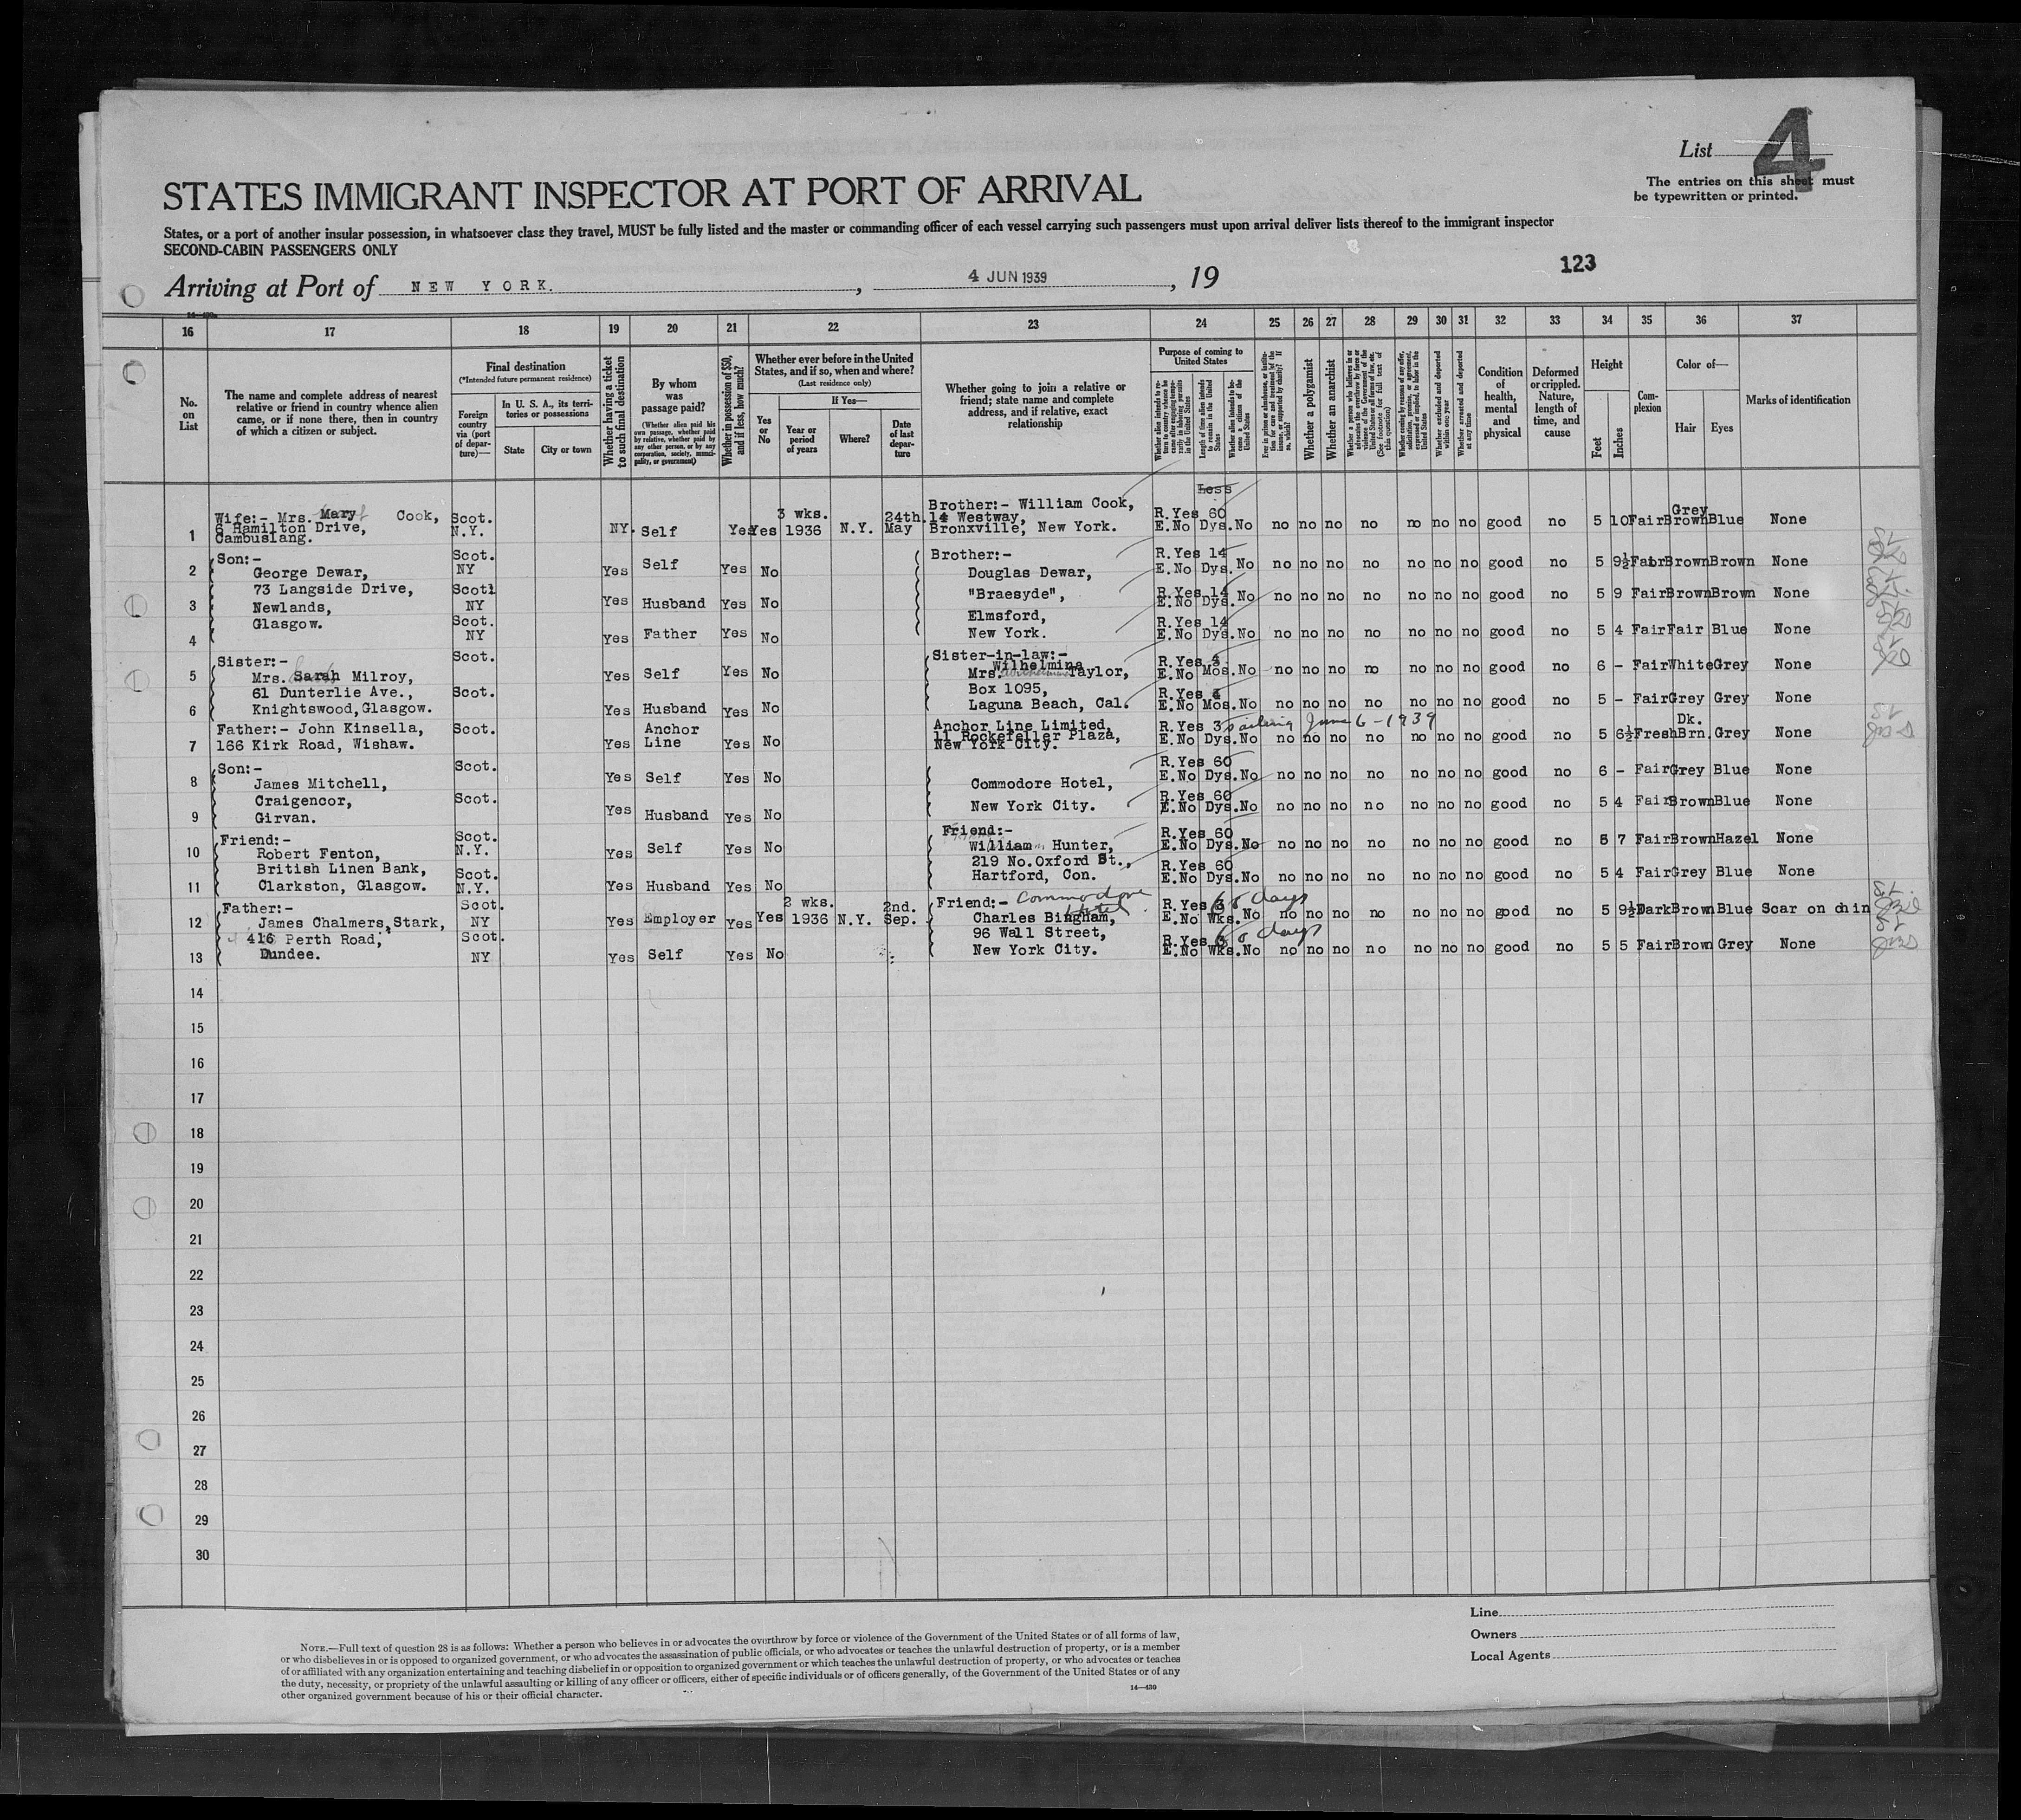 List 4
The entries on this sheet must
be typewritten or printed.
STATES IMMIGRANT INSPECTOR AT PORT OF ARRIVAL
States, or a port of another insular possession, in whatsoever class they travel, MUST be fully listed and the master or commanding officer of each vessel carrying such passengers must upon arrival deliver lists thereof to the immigrant inspector
SECOND-CABIN PASSENGERS ONLY
123
Arriving at Port of NEW YORK. , 4 JUN 1939 , 19
16 17 18 19 20 21 22 23 24 25 26 27 28 29 30 31 32 33 34 35 36 37
No. on List
The name and complete address of nearest
relative or friend in country whence alien
came, or if none there, then in country
of which a citizen or subject.
Final destination
(*Intended future permanent residence)
Foreign country via (port of departure)—
In U. S. A., its territories or possessions
State City or town
Whether having a ticket to such final destination
By whom was passage paid?
(Whether alien paid his own passage, whether paid by relative, whether paid by any other person, or by any corporation, society, municipality, or government)
Whether in possession of $50, and if less, how much?
Whether ever before in the United States, and if so, when and where?
(Last residence only)
Yes or No
If Yes—
Year or period of years Where? Date of last departure
Whether going to join a relative or
friend; state name and complete
address, and if relative, exact
relationship
Purpose of coming to United States
Whether a polygamist
Whether an anarchist
Whether excluded and deported within one year
Whether arrested and deported at any time
Condition of health, mental and physical
Deformed or crippled. Nature, length of time, and cause
Height
Feet Inches
Complexion
Color of—
Hair Eyes
Marks of identification
Less
1 Wife:- Mrs. Mary Cook, 6 Hamilton Drive, Cambuslang. Scot. N.Y. NY. Self Yes Yes 3 wks. 1936 N.Y. 24th. May Brother:- William Cook, 14 Westway, Bronxville, New York. R.Yes 60 E.No Dys. No no no no no no no no good no 5 10 Fair Grey Brown Blue None
2 Son:- George Dewar, Scot. NY Yes Self Yes No Brother:- Douglas Dewar, R.Yes 14 E.No Dys. No no no no no no no no good no 5 9½ Fair Brown Brown None
3 73 Langside Drive, Newlands, Scotl NY Yes Husband Yes No "Braesyde", Elmsford, R.Yes 14 E.No Dys. No no no no no no no no good no 5 9 Fair Brown Brown None
4 Glasgow. Scot. NY Yes Father Yes No New York. R.Yes 14 E.No Dys. No no no no no no no no good no 5 4 Fair Fair Blue None
5 Sister:- Mrs. Sarah Milroy, Scot. Yes Self Yes No Sister-in-law:- Mrs. Wilhelmina Taylor, R.Yes 4 E.No Mos. No no no no no no no no good no 6 - Fair White Grey None
6 61 Dunterlie Ave., Knightswood, Glasgow. Scot. Yes Husband Yes No Box 1095, Laguna Beach, Cal. R.Yes 4 E.No Mos. No no no no no no no no good no 5 - Fair Grey Grey None
7 Father:- John Kinsella, 166 Kirk Road, Wishaw. Scot. Yes Anchor Line Yes No Anchor Line Limited, 11 Rockefeller Plaza, New York City. R.Yes 3 E.No Dys. No sailing June 6-1939 no no no no no no no good no 5 6½ Fresh Dk. Brn. Grey None
8 Son:- James Mitchell, Scot. Yes Self Yes No Commodore Hotel, R.Yes 60 E.No Dys. No no no no no no no no good no 6 - Fair Grey Blue None
9 Craigencor, Girvan. Scot. Yes Husband Yes No New York City. R.Yes 60 E.No Dys. No no no no no no no no good no 5 4 Fair Brown Blue None
10 Friend:- Robert Fenton, Scot. N.Y. Yes Self Yes No Friend:- William Hunter, R.Yes 60 E.No Dys. No no no no no no no no good no 5 7 Fair Brown Hazel None
11 British Linen Bank, Clarkston, Glasgow. Scot. N.Y. Yes Husband Yes No 219 No. Oxford St., Hartford, Con. R.Yes 60 E.No Dys. No no no no no no no no good no 5 4 Fair Grey Blue None
12 Father:- James Chalmers, Stark, Scot. NY Yes Employer Yes Yes 2 wks. 1936 N.Y. 2nd. Sep. Friend:- Commodore Hotel Charles Bingham, R.Yes 3 E.No Wks. No 60 days no no no no no no no good no 5 9½ Dark Brown Blue Scar on chin
13 416 Perth Road, Dundee. Scot. NY Yes Self Yes No 96 Wall Street, New York City. R.Yes 3 E.No Wks. No 60 days no no no no no no no good no 5 5 Fair Brown Grey None
14
15
16
17
18
19
20
21
22
23
24
25
26
27
28
29
30
Line
Owners
Local Agents
NOTE.—Full text of question 28 is as follows: Whether a person who believes in or advocates the overthrow by force or violence of the Government of the United States or of all forms of law,
or who disbelieves in or is opposed to organized government, or who advocates the assassination of public officials, or who advocates or teaches the unlawful destruction of property, or is a member
of or affiliated with any organization entertaining and teaching disbelief in or opposition to organized government or which teaches the unlawful destruction of property, or who advocates or teaches
the duty, necessity, or propriety of the unlawful assaulting or killing of any officer or officers, either of specific individuals or of officers generally, of the Government of the United States or of any
other organized government because of his or their official character.
14—430